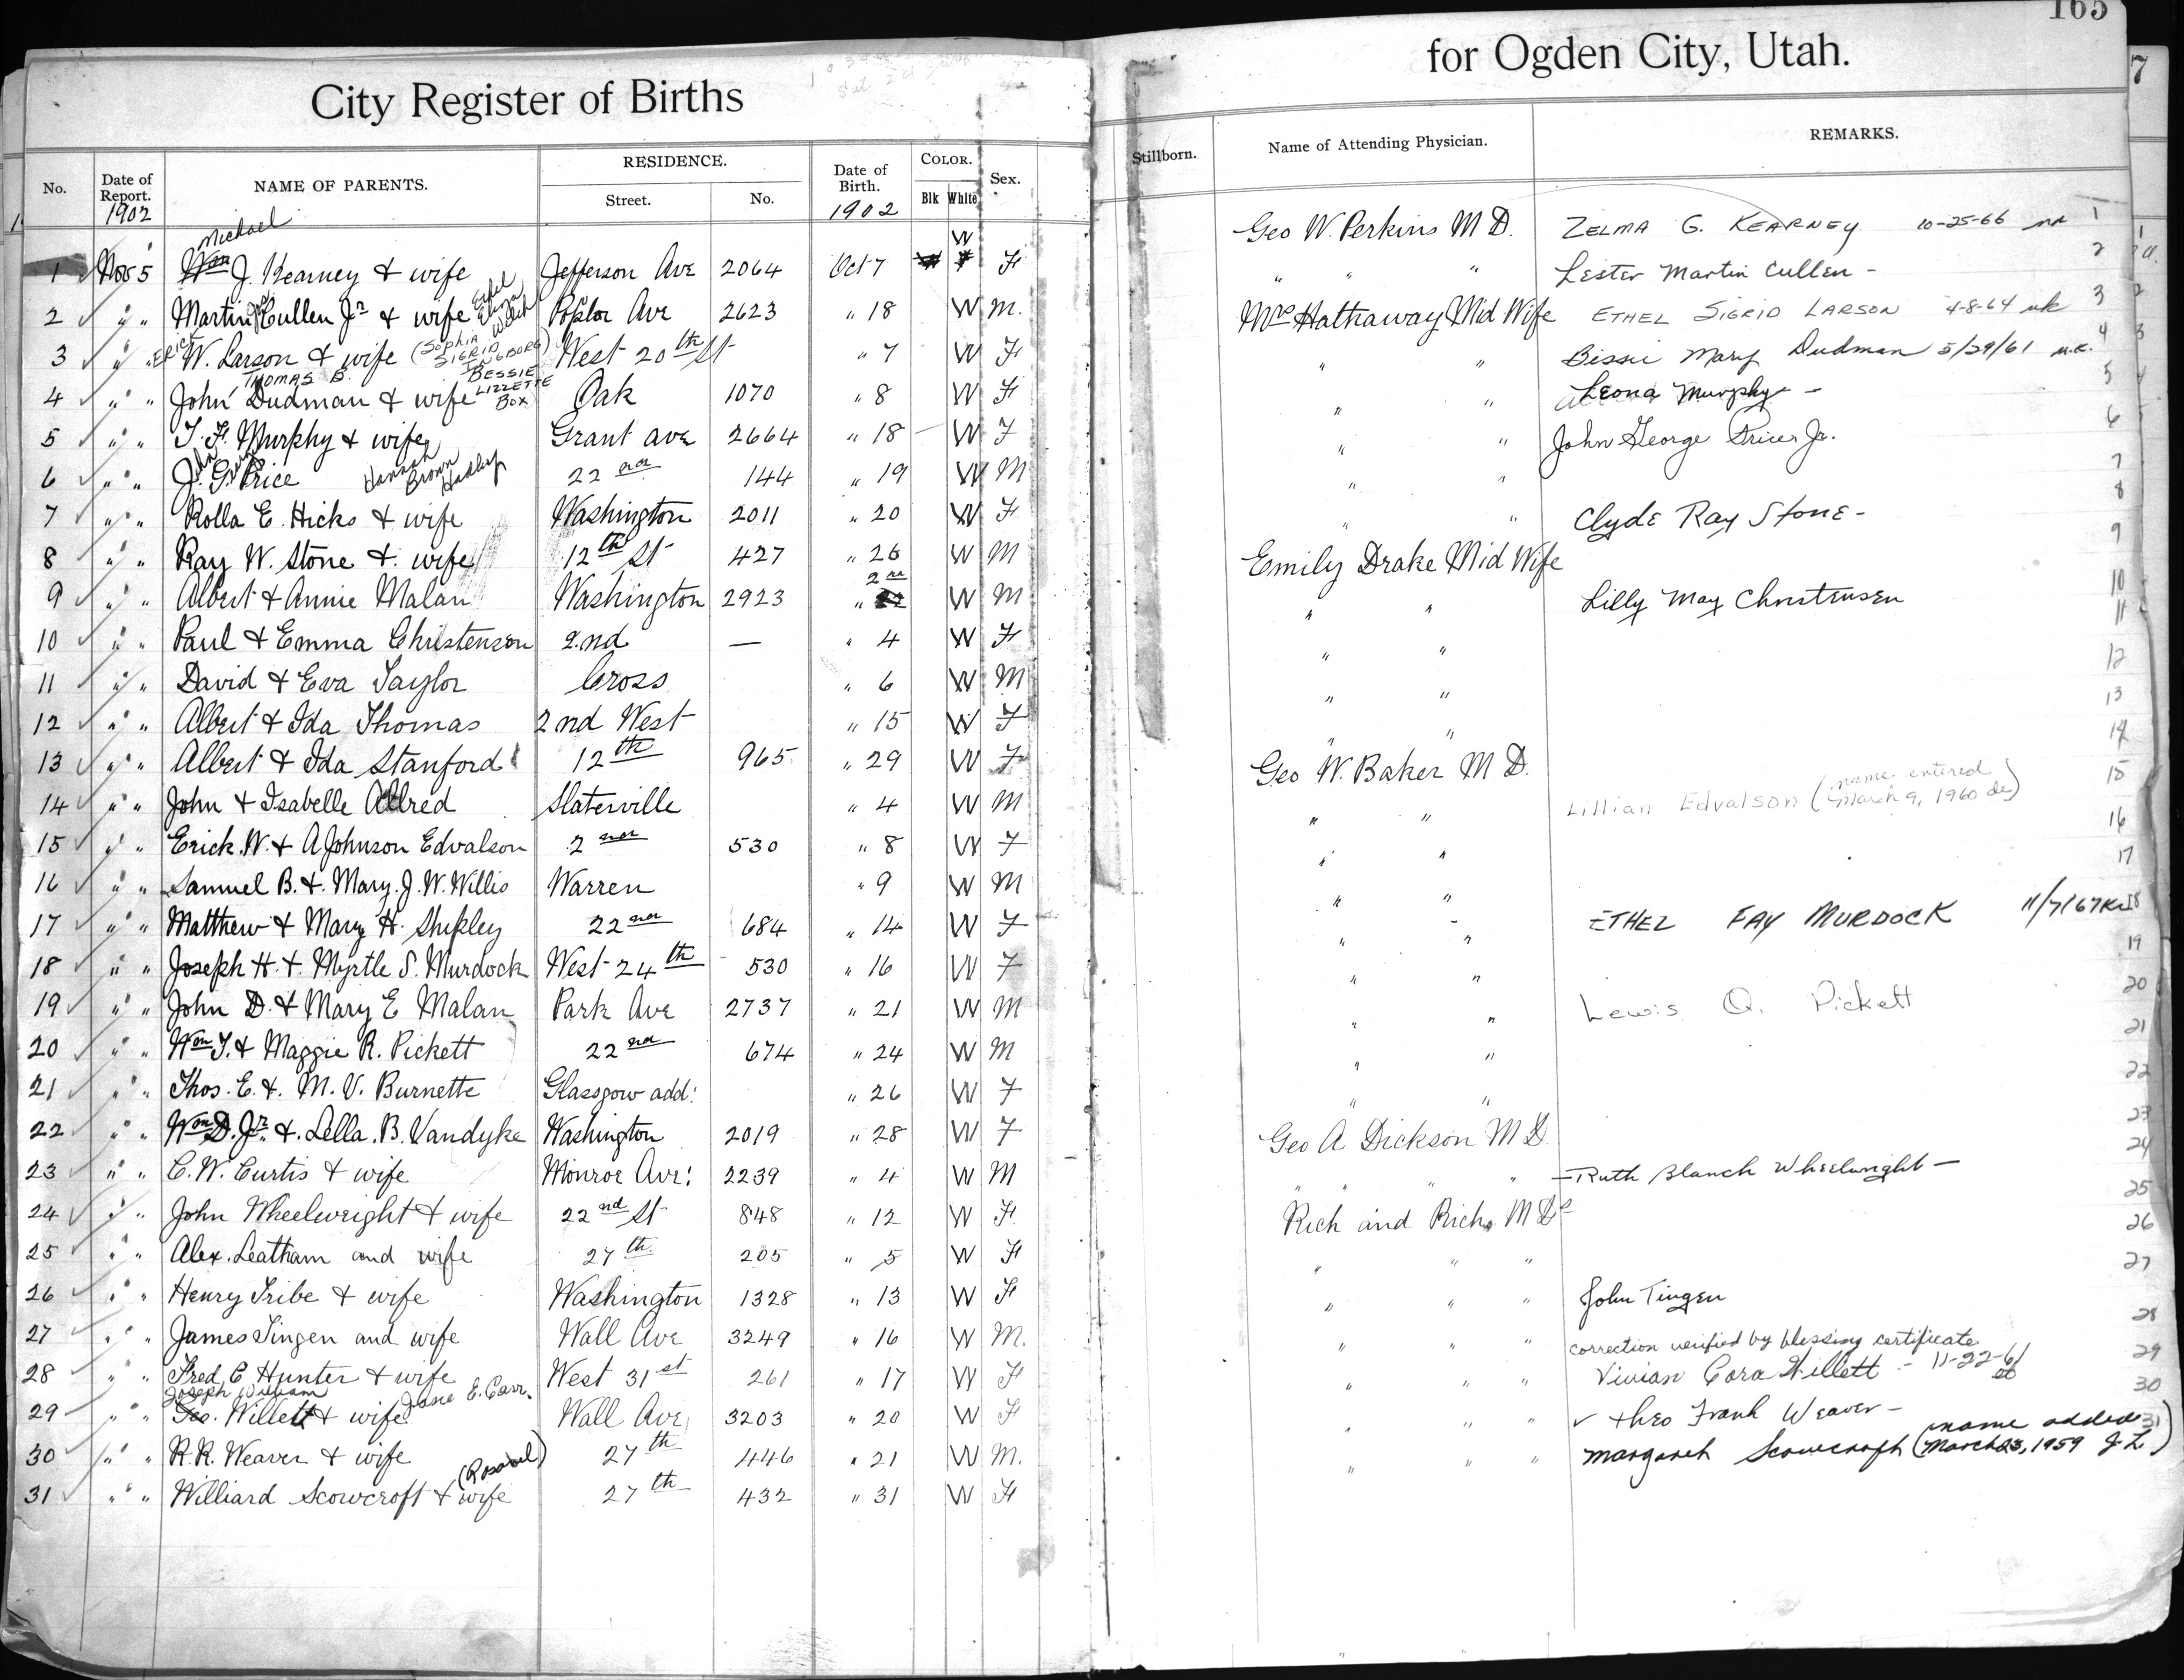 165
City Register of Births for Ogden City, Utah.
No. Date of Report. 1902 NAME OF PARENTS. RESIDENCE. Street. No. Date of Birth. 1902 COLOR. Blk White Sex.
Michael
W
1 Nov 5 Wm J. Kearney & wife Jefferson Ave 2064 Oct 7 F
Ethel Eliza Welch
2 " " Martin Cullen Jr & wife Poplar Ave 2623 " 18 W M.
3 " " Eric W. Larson & wife (Sophia SIGRID INGBORG) West 20th St " 7 W F
THOMAS B. BESSIE LIZZETTE BOX
4 " " John Dudman & wife Oak 1070 " 8 W F
5 " " T. F. Murphy & wife Grant ave 2664 " 18 W F
John Hannah Brown Hadley
6 " " J. G. Price 22nd 144 " 19 W M
7 " " Rolla E. Hicks & wife Washington 2011 " 20 W F
8 " " Ray W. Stone & wife 12th St 427 " 26 W M
9 " " Albert & Annie Malan Washington 2923 " 2nd W M
10 " " Paul & Emma Christenson 2nd — " 4 W F
11 " " David & Eva Taylor Cross " 6 W M
12 " " Albert & Ida Thomas 2nd West " 15 W F
13 " " Albert & Ida Stanford 12th 965 " 29 W F
14 " " John & Isabelle Allred Slaterville " 4 W M
15 " " Erick W. & A Johnson Edvalson 2nd 530 " 8 W F
16 " " Samuel B. & Mary J. W. Willis Warren " 9 W M
17 " " Matthew & Mary H. Shipley 22nd 684 " 14 W F
18 " " Joseph H. & Myrtle S. Murdock West 24th 530 " 16 W F
19 " " John D. & Mary E Malan Park Ave 2737 " 21 W M
20 " " Wm T. & Maggie R. Pickett 22nd 674 " 24 W M
21 " " Thos. E. & M. V. Burnette Glasgow add: " 26 W F
22 " " Wm D. Jr. & Lella B. Vandyke Washington 2019 " 28 W F
23 " " C. W. Curtis & wife Monroe Ave: 2239 " 4 W M
24 " " John Wheelwright & wife 22nd St 848 " 12 W F
25 " " Alex. Leatham and wife 27th 205 " 5 W F
26 " " Henry Tribe & wife Washington 1328 " 13 W F
27 " " James Tingen and wife Wall Ave 3249 " 16 W M.
28 " " Fred C Hunter & wife West 31st 261 " 17 W F
Joseph William Jane E. Carr.
29 " " Geo. Willett & wife Wall Ave 3203 " 20 W F
30 " " R. R. Weaver & wife 27th 446 " 21 W M.
(Rosabel)
31 " " Williard Scowcroft & wife 27th 432 " 31 W F
Stillborn. Name of Attending Physician. REMARKS.
Geo W. Perkins M D. ZELMA G. KEARNEY 10-25-66 1
" " " Lester Martin Cullen - 2
Mrs Hathaway Mid Wife ETHEL SIGRID LARSON 4-8-64 mk 3
" " Bessie Mary Dudman 5/29/61 m.k. 4
" " Leona Murphy - 5
" " John George Price Jr. 6
" " 7
" " Clyde Ray Stone - 8
Emily Drake Mid Wife 9
" " Lilly May Christensen 10
" " 11
" " 12
" " 13
Geo W. Baker M D. 14
" " Lillian Edvalson (name entered March 9, 1960 de) 15
" " 16
" " 17
" " ETHEL FAY MURDOCK 11/7/67 18
" " 19
" " Lewis Q. Pickett 20
" " 21
" " 22
Geo A Dickson M D. 23
" " " " Ruth Blanch Wheelwright — 24
Rich and Rich, M Ds 25
" " " 26
" " " John Tingen 27
" " " correction verified by blessing certificate 28
" " " Vivian Cora Willett - 11-22-61 29
" " " Theo Frank Weaver - 30
" " " Margaret Scowcroft (name added March 23, 1959 J.L.) 31